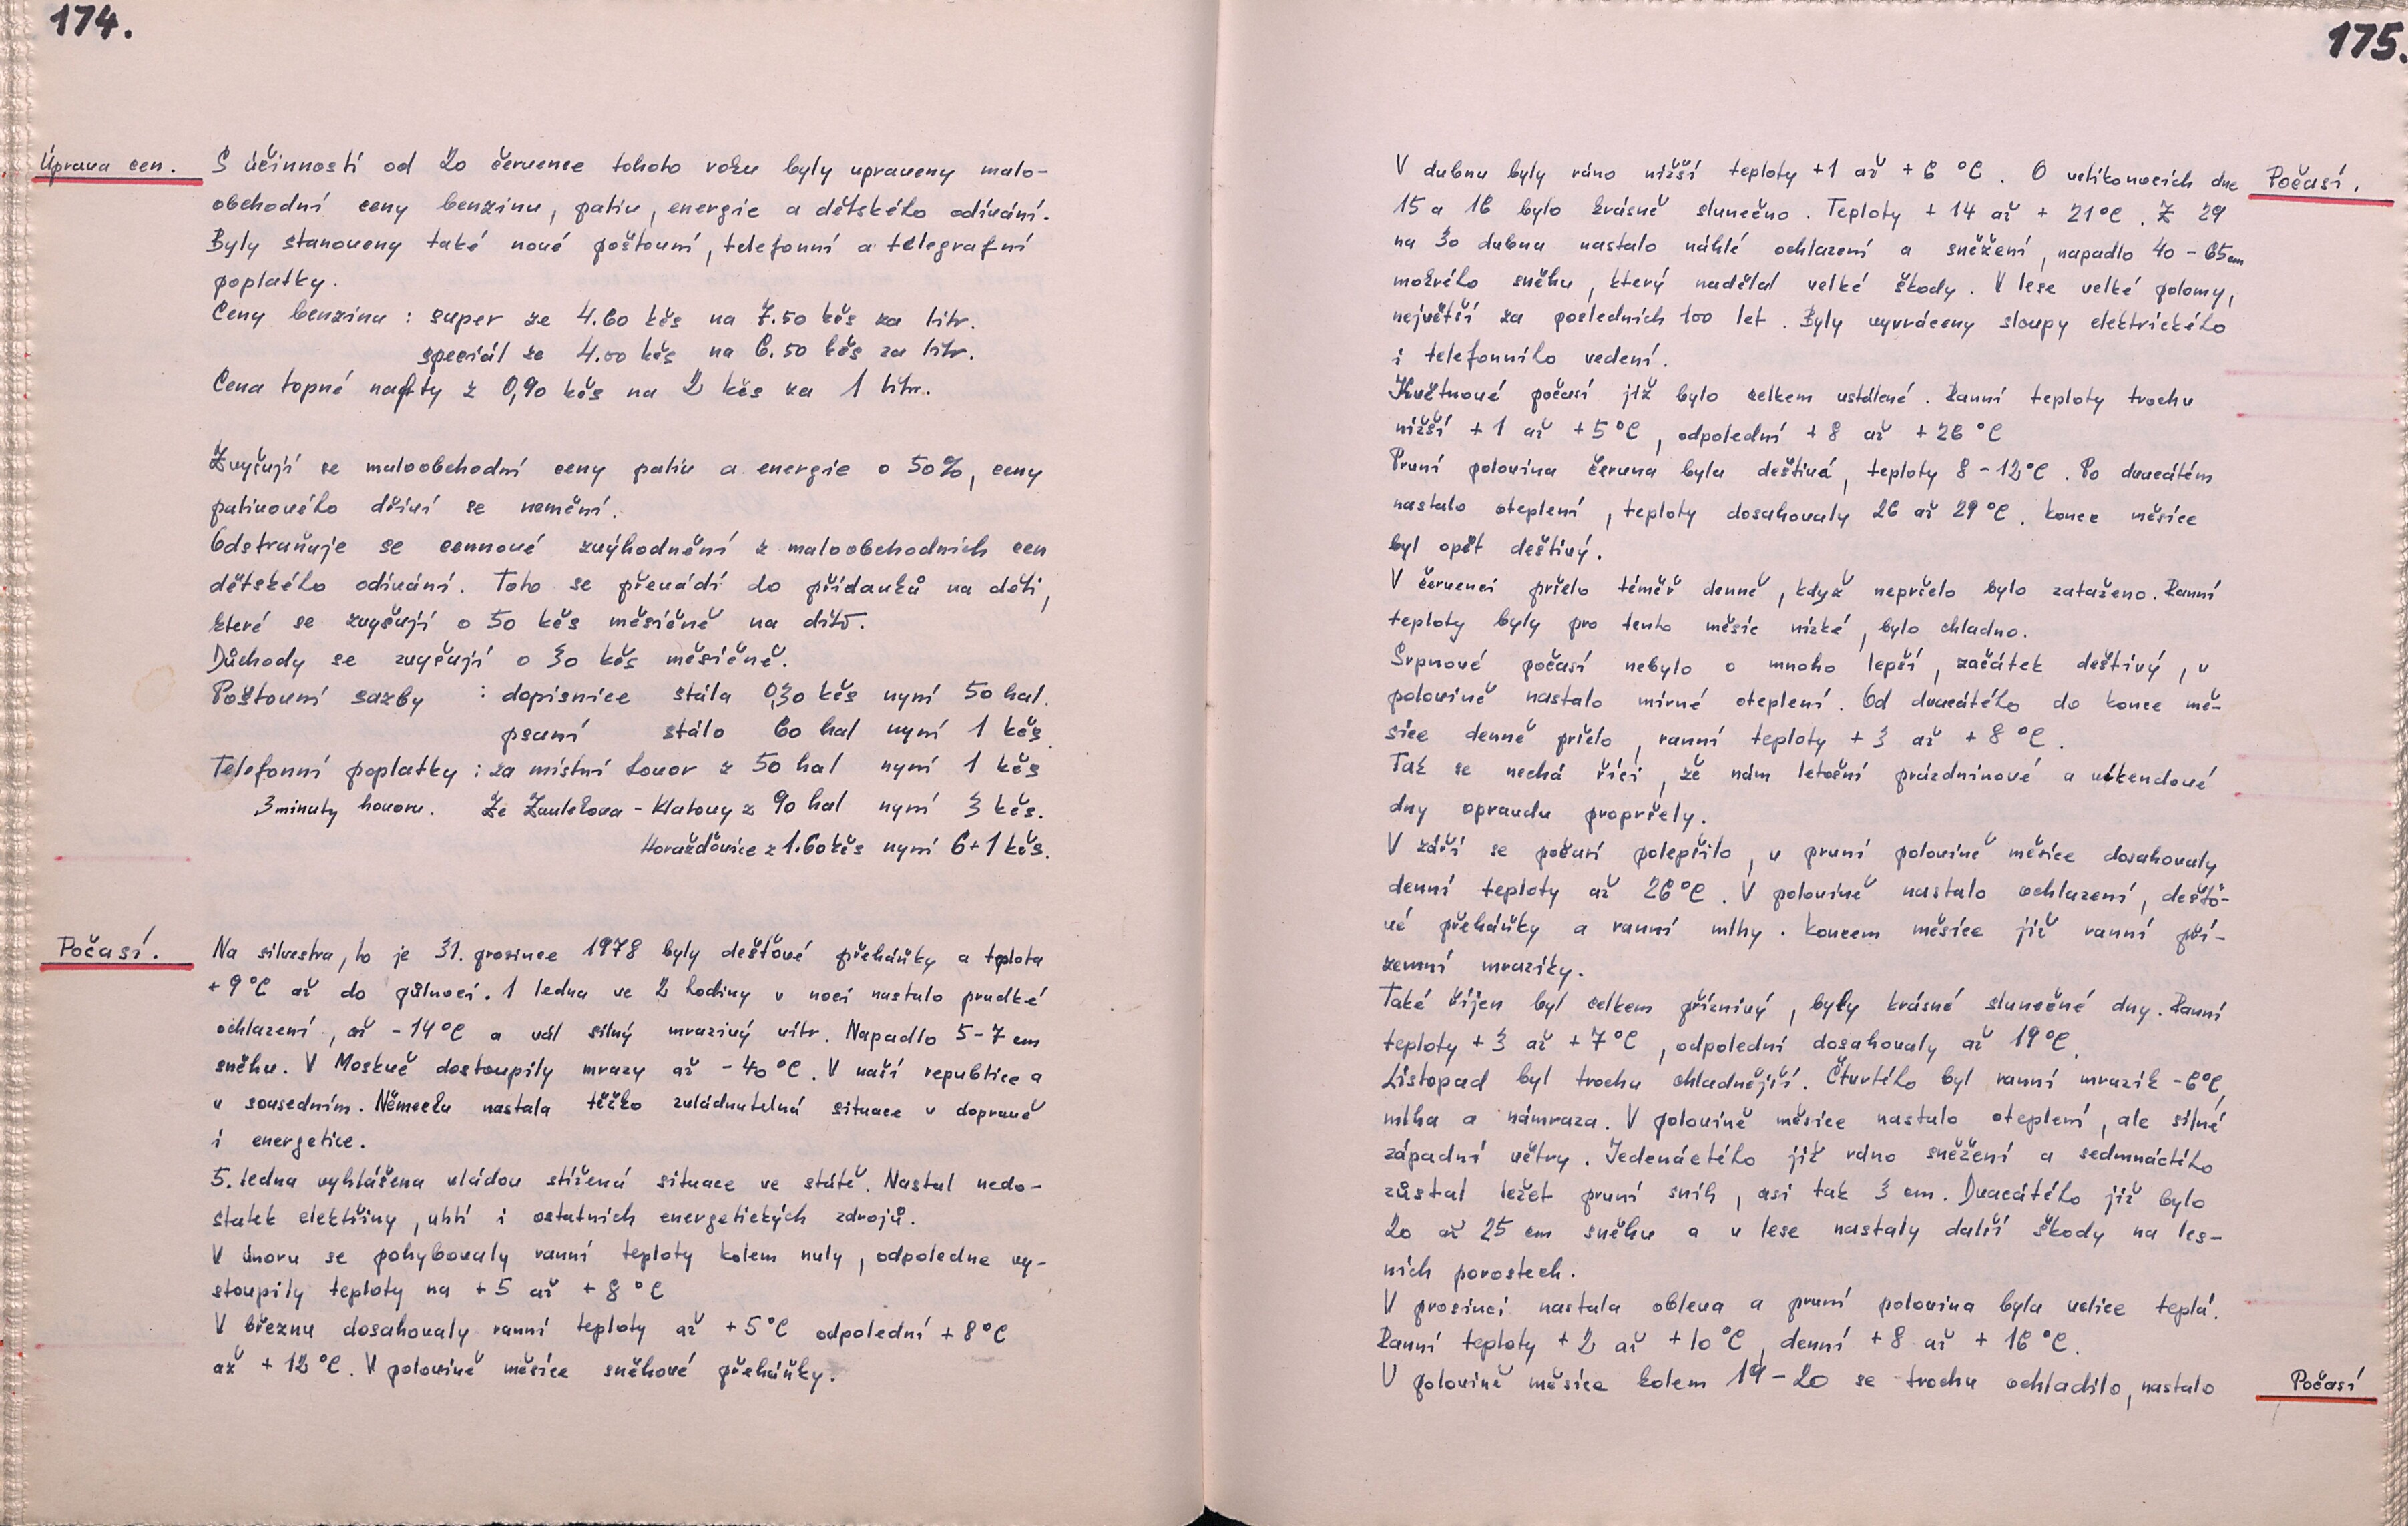 174.
Úprava cen.
S účinností od 20 července tohoto roku byly upraveny malo-
obchodní ceny benzinu, paliv, energie a dětského odívání.
Byly stanoveny také nové poštovní, telefonní a telegrafní
poplatky.
Ceny benzinu : super ze 4.60 kčs na 7.50 kčs za litr.
speciál ze 4.00 kčs na 6.50 kčs za litr.
Cena topné nafty z 0,90 kčs na 2 kčs za 1 litr.
Zvyšují se maloobchodní ceny paliv a energie o 50%, ceny
palivového dříví se nemění.
Odstraňuje se cennové zvýhodnění z maloobchodních cen
dětského odívání. Toto se převádí do přídavků na děti,
které se zvyšují o 50 kčs měsíčně na dítě.
Důchody se zvyšují o 30 kčs měsíčně.
Poštovní sazby : dopisnice stála 0,30 kčs nyní 50 hal.
psaní stálo 60 hal nyní 1 kčs.
Telefonní poplatky : za místní hovor z 50 hal nyní 1 kčs
3minuty hovoru. Ze Zavlekova - Klatovy z 90 hal nyní 3 kčs.
Horažďovice z 1.60 kčs nyní 6+1 kčs.
Počasí.
Na silvestra, to je 31. prosince 1978 byly dešťové přeháňky a teplota
+ 9 °C až do půlnoci. 1 ledna ve 2 hodiny v noci nastalo prudké
ochlazení, až - 14 °C a vál silný mrazivý vítr. Napadlo 5-7 cm
sněhu. V Moskvě dostoupily mrazy až - 40 °C. V naší republice a
v sousedním. Německu nastala těžko zvládnutelná situace v dopravě
i energetice.
5. ledna vyhlášena vládou stížená situace ve státě. Nastal nedo-
statek elektřiny, uhlí i ostatních energetických zdrojů.
V únoru se pohybovaly ranní teploty kolem nuly, odpoledne vy-
stoupily teploty na + 5 až + 8 °C
V březnu dosahovaly ranní teploty až + 5 °C odpolední + 8 °C
až + 12 °C. V polovině měsíce sněhové přeháňky.
175.
Počasí.
V dubnu byly ráno nižší teploty +1 až + 6 °C. O velikonocích dne
15 a 16 bylo krásně slunečno. Teploty + 14 až + 21°C. Z 29
na 30 dubna nastalo náhlé ochlazení a sněžení, napadlo 40 - 65 cm
mokrého sněhu, který nadělal velké škody. V lese velké polomy,
největší za posledních 100 let. Byly vyvráceny sloupy elektrického
i telefonního vedení.
Květnové počasí již bylo celkem ustálené. Ranní teploty trochu
nižší + 1 až + 5 °C, odpolední + 8 až + 26 °C
První polovina června byla deštivá, teploty 8 - 12°C. Po dvacátém
nastalo oteplení, teploty dosahovaly 26 až 29 °C. konec měsíce
byl opět deštivý.
V červenci pršelo téměř denně, když nepršelo bylo zataženo. Ranní
teploty byly pro tento měsíc nízké, bylo chladno.
Srpnové počasí nebylo o mnoho lepší, začátek deštivý, v
polovině nastalo mírné oteplení. Od dvacátého do konce mě-
síce denně pršelo, ranní teploty + 3 až + 8 °C.
Tak se nechá říci, že nám letošní prázdninové a víkendové
dny opravdu propršely.
V září se počasí polepšilo, v první polovině měsíce dosahovaly
denní teploty až 26 °C. V polovině nastalo ochlazení, dešťo-
vé přeháňky a ranní mlhy. koncem měsíce již ranní pří-
zemní mrazíky.
Také říjen byl celkem příznivý, byly krásné slunečné dny. Ranní
teploty + 3 až + 7 °C, odpolední dosahovaly až 19 °C.
Listopad byl trochu chladnější. Čtvrtého byl ranní mrazík - 6°C,
mlha a námraza. V polovině měsíce nastalo oteplení, ale silné
západní větry. Jedenáctého již ráno sněžení a sedmnáctého
zůstal ležet první sníh, asi tak 3 cm. Dvacátého již bylo
20 až 25 cm sněhu a v lese nastaly další škody na les-
ních porostech.
V prosinci nastala obleva a první polovina byla velice teplá.
Ranní teploty + 2 až + 10 °C, denní + 8 až + 16 °C.
V polovině měsíce kolem 19 - 20 se trochu ochladilo, nastalo
Počasí